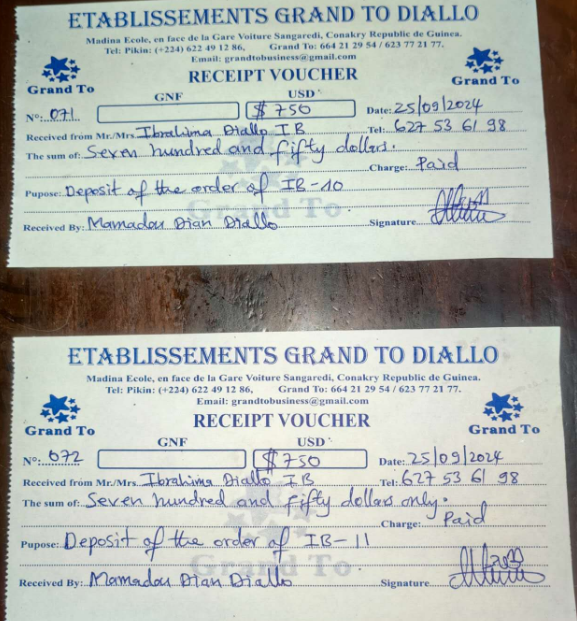 ETABLISSEMENTS GRAND TO DIALLO
Madina Ecole, en face de la Gare Voiture Sangaredi, Conakry Republic de Guinea.
Tel: Pikin: (+224) 622 49 12 86, Grand To: 664 21 29 54 / 623 77 21 77.
Email: grandtobusiness@gmail.com
RECEIPT VOUCHER
Grand To
Grand To
GNF USD
Nº: 071 $ 750 Date: 25/09/2024
Received from Mr./Mrs. Ibrahima Diallo IB Tel: 627 53 61 98
The sum of: Seven hundred and fifty dollars.
Charge: Paid
Pupose: Deposit of the order of IB-10
Grand To
Received By: Mamadou Dian Diallo Signature
ETABLISSEMENTS GRAND TO DIALLO
Madina Ecole, en face de la Gare Voiture Sangaredi, Conakry Republic de Guinea.
Tel: Pikin: (+224) 622 49 12 86, Grand To: 664 21 29 54 / 623 77 21 77.
Email: grandtobusiness@gmail.com
RECEIPT VOUCHER
Grand To
Grand To
GNF USD
Nº: 072 $ 750 Date: 25/09/2024
Received from Mr./Mrs. Ibrahima Diallo IB Tel: 627 53 61 98
The sum of: Seven hundred and fifty dollars only.
Charge: Paid
Pupose: Deposit of the order of IB-11
Grand To
Received By: Mamadou Dian Diallo Signature